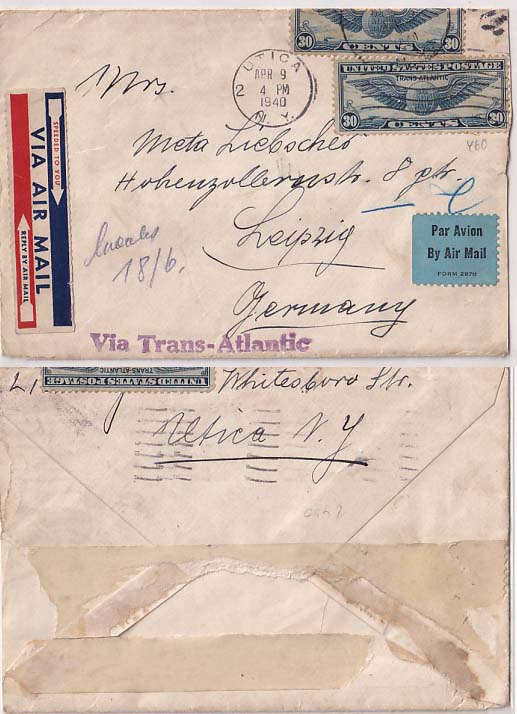 30 CENTS 30
UTICA
APR 9
4 PM
1940
N. Y.
2
UNITED STATES POSTAGE
TRANS-ATLANTIC
30 CENTS 30
Y60
Mrs.
Meta Liebscher
Hohenzollernstr. 8 ptr.
Leipzig
Germany
18/6.
SPEEDED TO YOU
VIA AIR MAIL
REPLY BY AIR MAIL
Par Avion
By Air Mail
FORM 2978
Via Trans-Atlantic
UNITED STATES POSTAGE
TRANS-ATLANTIC
Whitesboro Str.
Utica N. Y